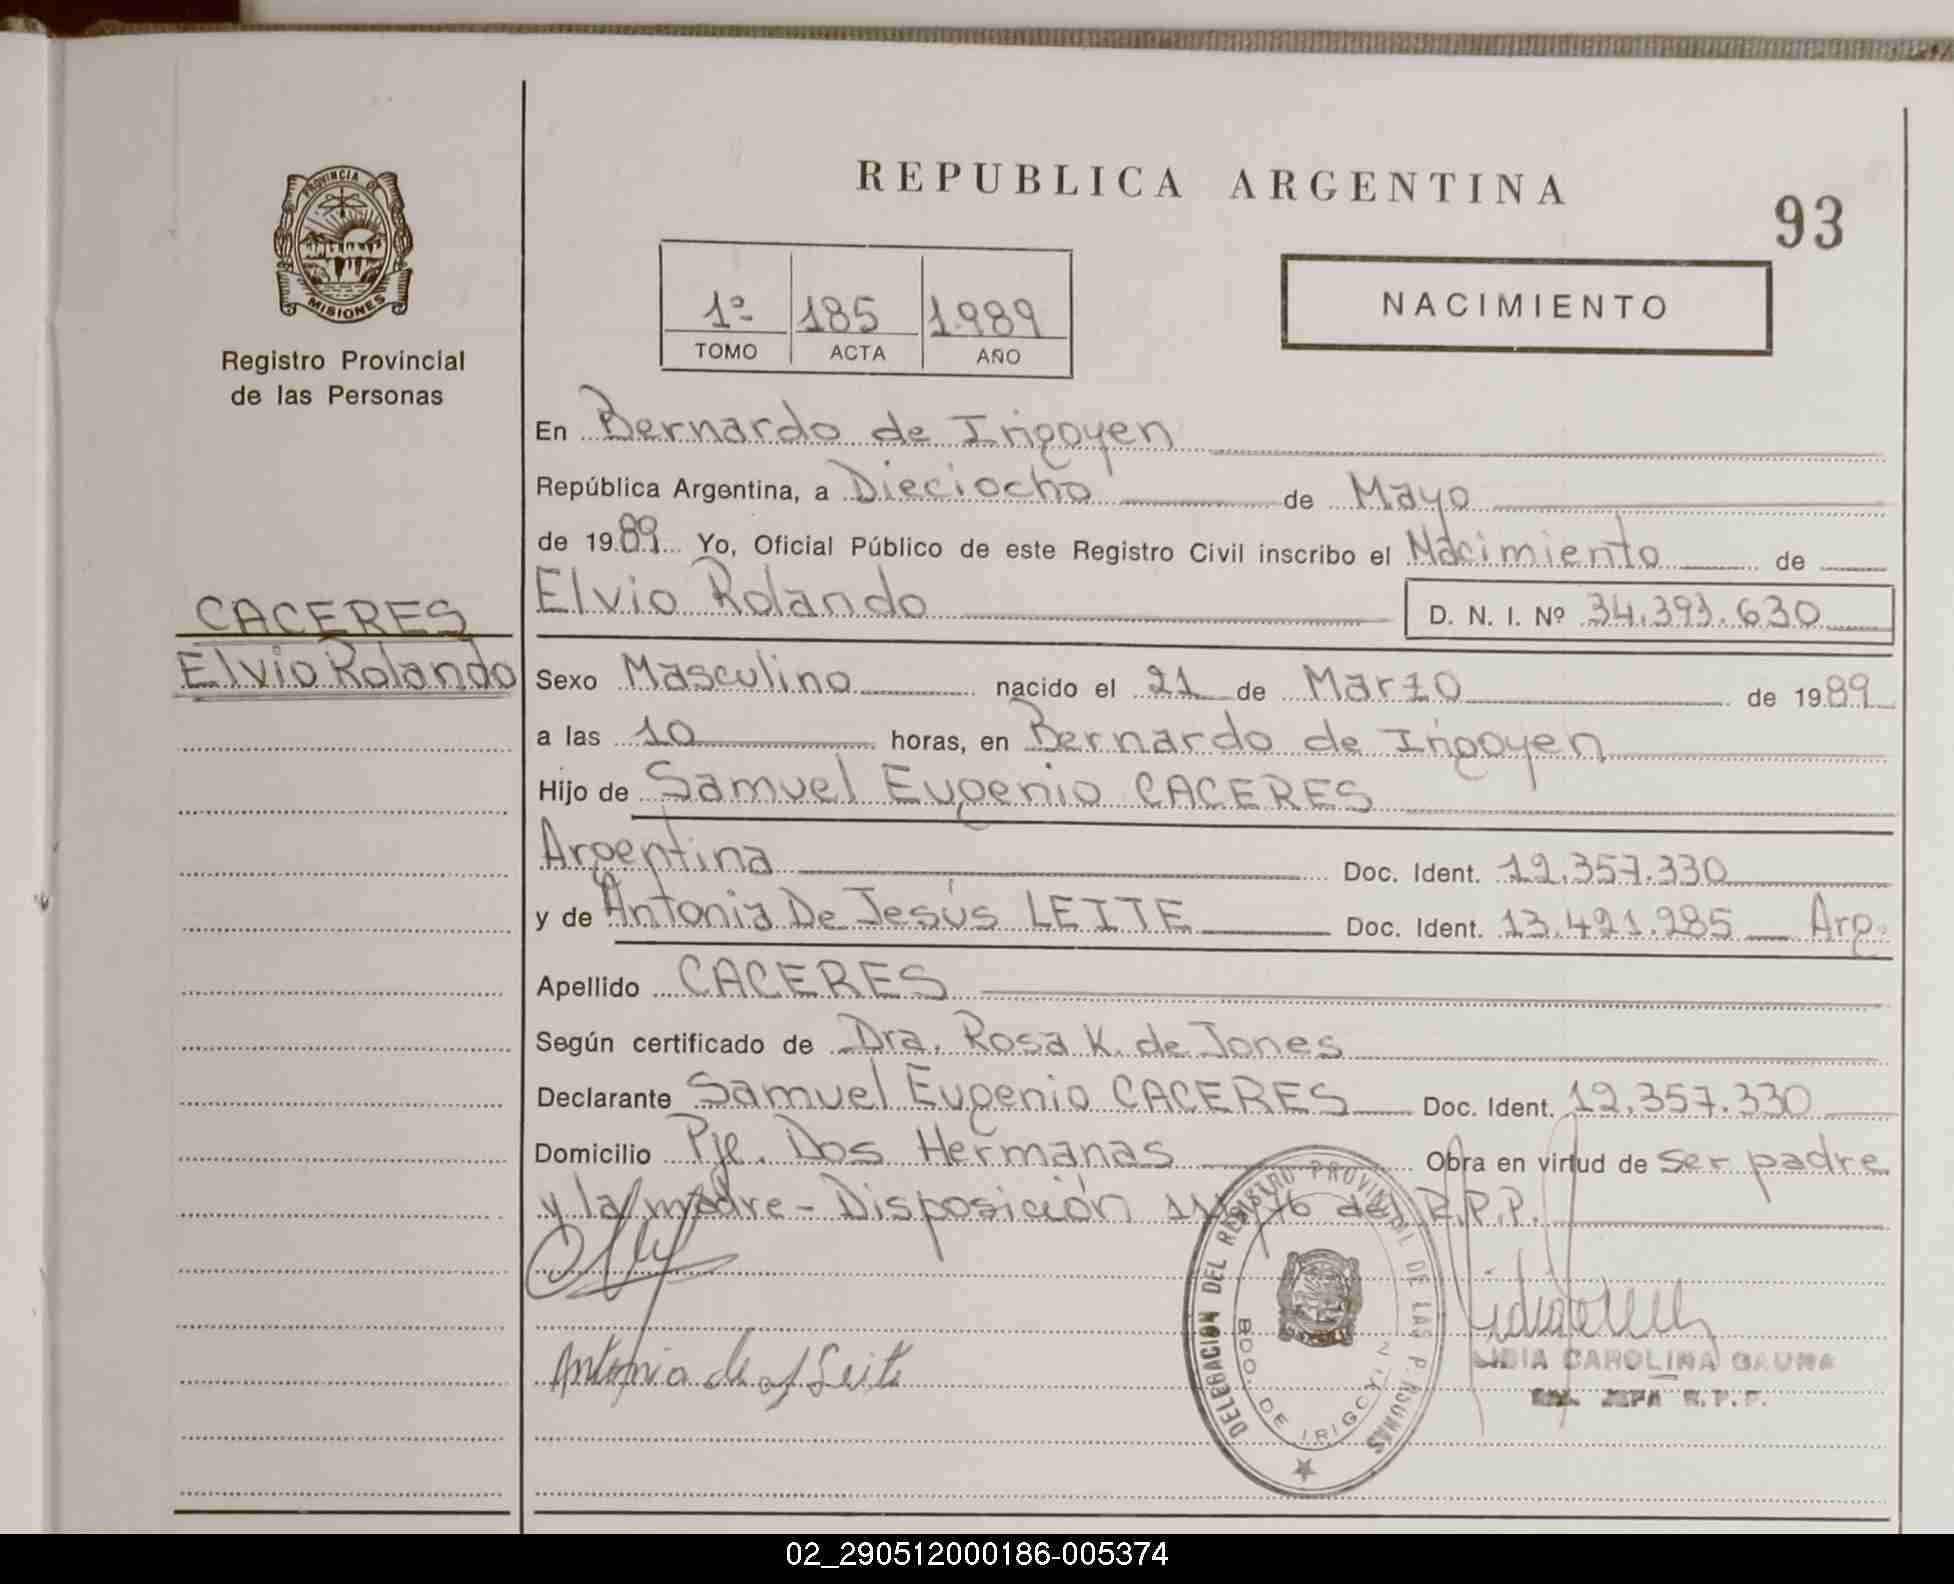 REPUBLICA ARGENTINA
93
PROVINCIA DE
MISIONES
Registro Provincial
de las Personas
1ª 185 1.989
TOMO ACTA AÑO
NACIMIENTO
En Bernardo de Irigoyen
República Argentina, a Dieciocho de Mayo
de 1989 Yo, Oficial Público de este Registro Civil inscribo el Nacimiento de
CACERES
Elvio Rolando
Elvio Rolando D. N. I. Nº 34.393.630
Sexo Masculino nacido el 21 de Marzo de 1989
a las 10 horas, en Bernardo de Irigoyen
Hijo de Samuel Eugenio CACERES
Argentina Doc. Ident. 12.357.330
y de Antonia De Jesús LEITE Doc. Ident. 13.421.285 Arg.
Apellido CACERES
Según certificado de Dra. Rosa K. de Jones
Declarante Samuel Eugenio CACERES Doc. Ident. 12.357.330
Domicilio Pje. Dos Hermanas Obra en virtud de ser padre
y la madre - Disposición del R.P.P.
DELEGACION DEL REGISTRO PROVINCIAL DE LAS PERSONAS
BDO. DE IRIGOYEN
Antonia de J Leite
LIDIA CAROLINA GAUNA
JEFA R.P.P.
02_290512000186-005374